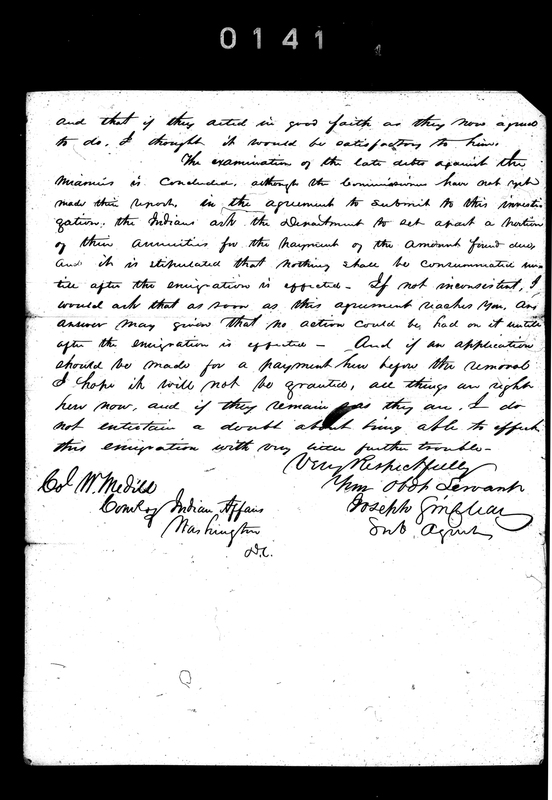 0141
and that if they acted in good faith as they now agreed
to do, I thought it would be satisfactory to him.
The examination of the late debts against the
Miamies is concluded, although the Commissioners have not yet
made their report, in the agreement to submit to this investi
gation, the Indians ask the Department to set apart a portion
of their annuities for the payment of the amount found due,
and it is stipulated that nothing shall be consummated un
till after the emigration is effected - If not inconsistent, I
would ask that as soon as this agreement reaches you, an
answer may given that no action could be had on it untill
after the emigration is effected - And if an application
should be made for a payment here before the removal
I hope it will not be granted, all things are right
here now, and if they remain as they are, I do
not entertain a doubt about being able to effect
this emigration with very little further trouble -
Very Respectfully
Your Obdt Servant
Joseph Sinclear
Sub Agent
Col W. Medill
Comr of Indian Affairs
Washington
D.C.